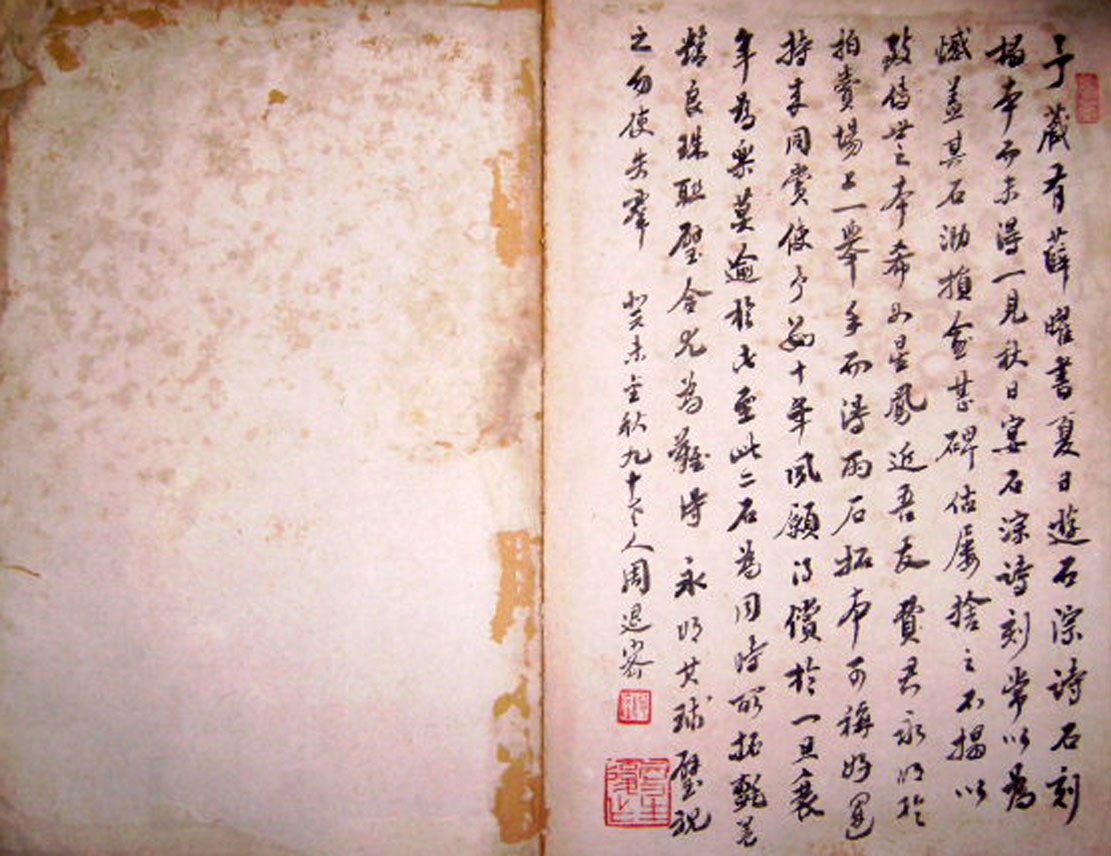 予藏有薛曜書夏日遊石淙詩石刻
搨本而未得一見秋日宴石淙詩刻常以為
憾蓋其石泐損僉甚碑估屢捨之不搨以
致傳世之本希如星鳳近吾友費君永明於
拍賣場上一舉手而得兩石拓本可稱好運
持來同賞使予數十年夙願得償於一旦衰
年為樂莫逾於此至此二石為同時所拓氈蠟
精良珠聯璧合尤為難得永明其球璧視
之勿使失群
癸未全秋九十老人周退密